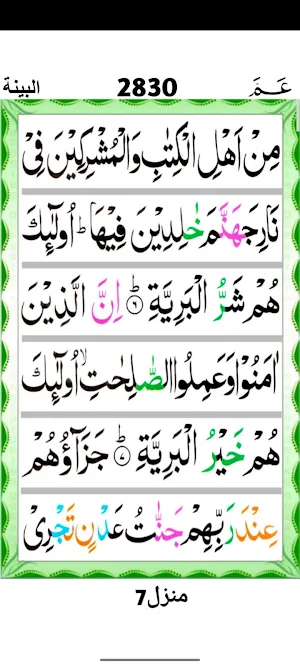 عَمَّ 2830 البينة
مِنْ اَهْلِ الْكِتٰبِ وَالْمُشْرِكِيْنَ فِيْ
نَارِ جَهَنَّمَ خٰلِدِيْنَ فِيْهَا ؕ اُولٰٓئِكَ
هُمْ شَرُّ الْبَرِيَّةِ ؕ۶ اِنَّ الَّذِيْنَ
اٰمَنُوْا وَعَمِلُوا الصّٰلِحٰتِ ۙ اُولٰٓئِكَ
هُمْ خَيْرُ الْبَرِيَّةِ ؕ۷ جَزَآؤُهُمْ
عِنْدَ رَبِّهِمْ جَنّٰتُ عَدْنٍ تَجْرِيْ
منزل7